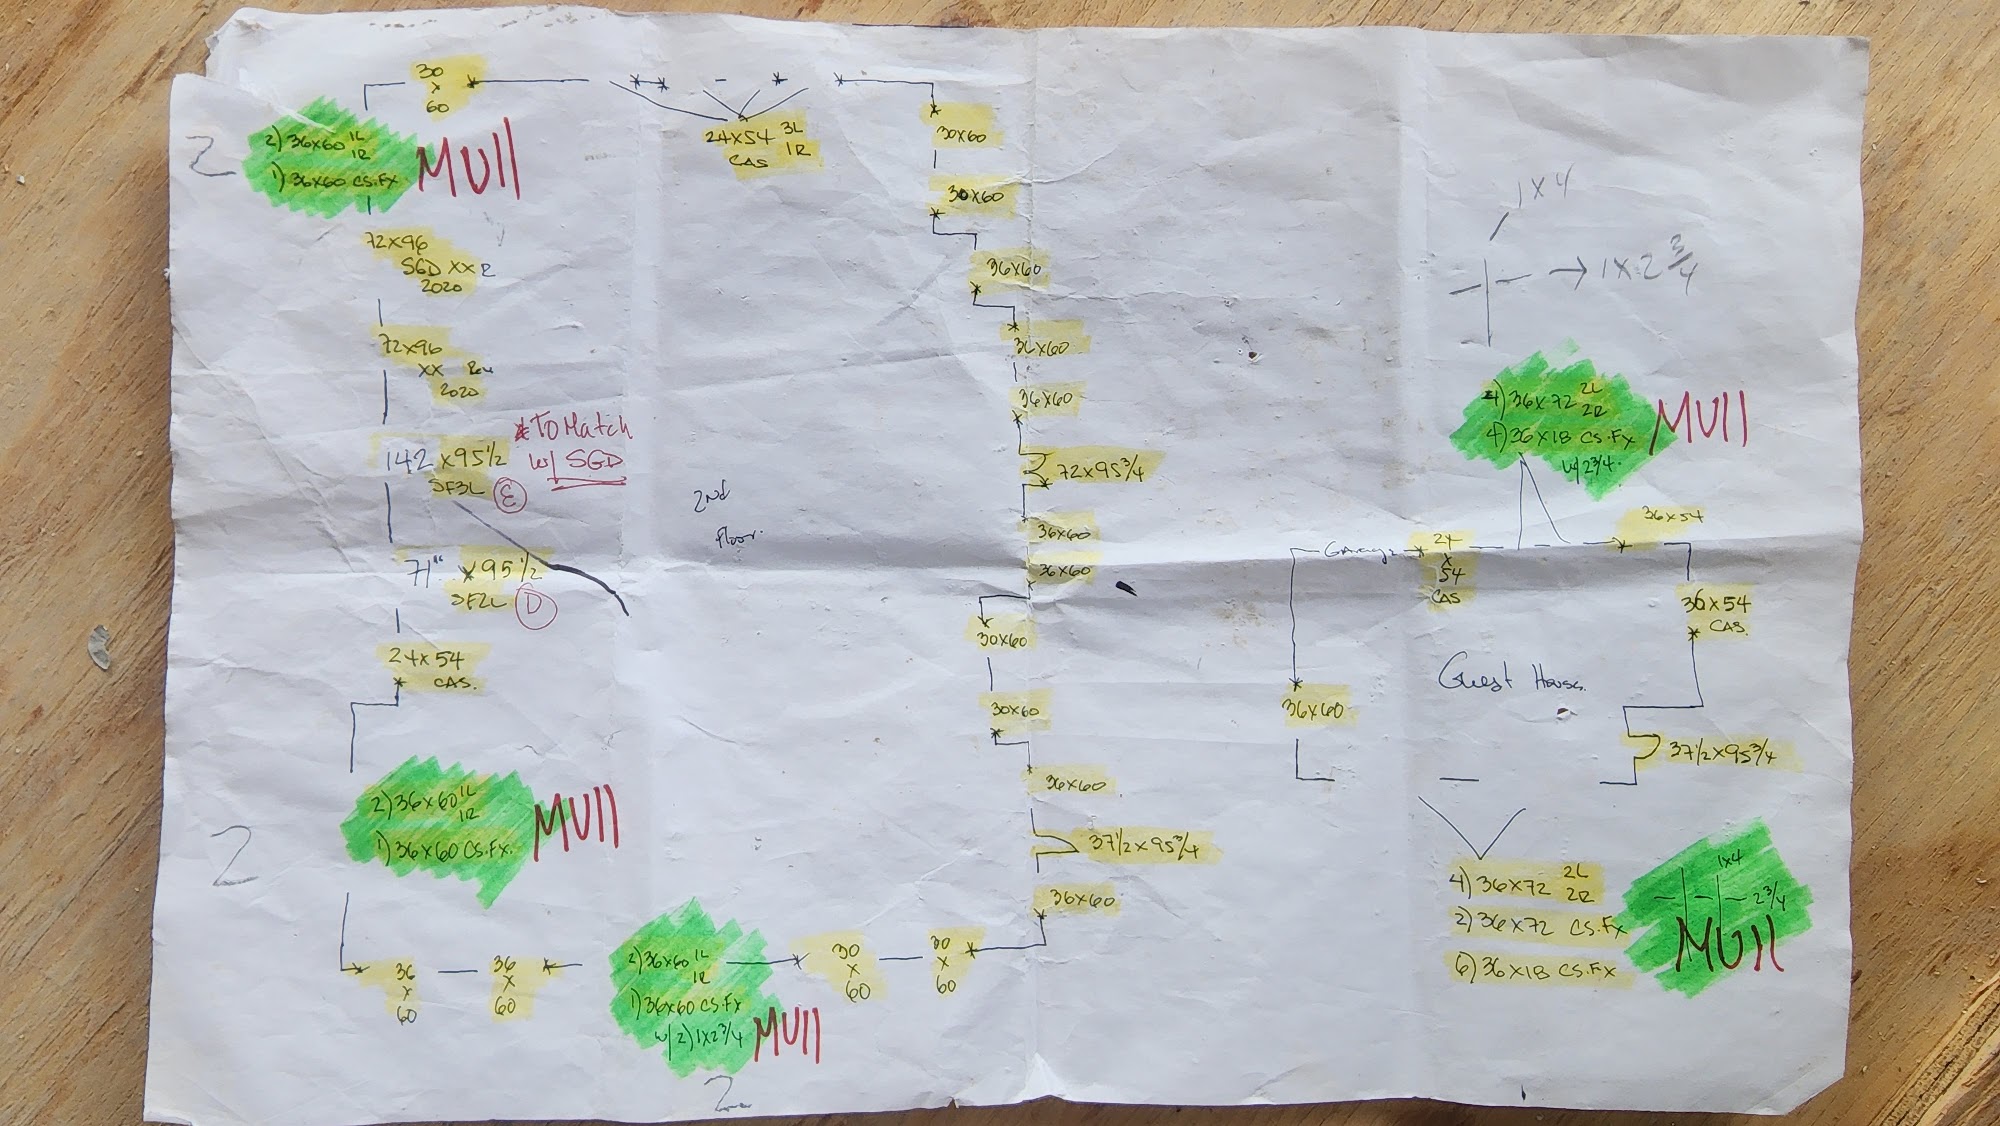 30
x
60
2
2) 36x60 1L
1R
1) 36x60 CS.Fx
MUll
24x54 3L
1R
CAS
30x60
30x60
72x96
SGD XX R
2020
36x60
72x96
XX
2020
36x60
36x60
* To Match
w/ SGD
142 x95 1/2
SF3L E
72x95 3/4
2nd
floor.
36x60
36x60
71" x95 1/2
SF2L D
30x60
24x54
CAS.
30x60
36x60
2
2) 36x60 1L
1R
1) 36x60 CS.Fx.
MUll
37 1/2 x 95 3/4
36x60
36
x
60
36
x
60
2) 36x60 1L
1R
1) 36x60 CS.Fx
w/ 2) 1x2 3/4
MUll
2
30
x
60
30
x
60
1x4
→ 1x2 3/4
4) 36x72 2L
2R
4) 36x18 CS.Fx
w/ 2 3/4.
MUll
36x54
Garage
24
x
54
CAS
36x54
CAS.
Guest House
36x60
37 1/2 x 95 3/4
4) 36x72 2L
2R
2) 36x72 CS.Fx
6) 36x18 CS.Fx
1x4
2 3/4
MUll